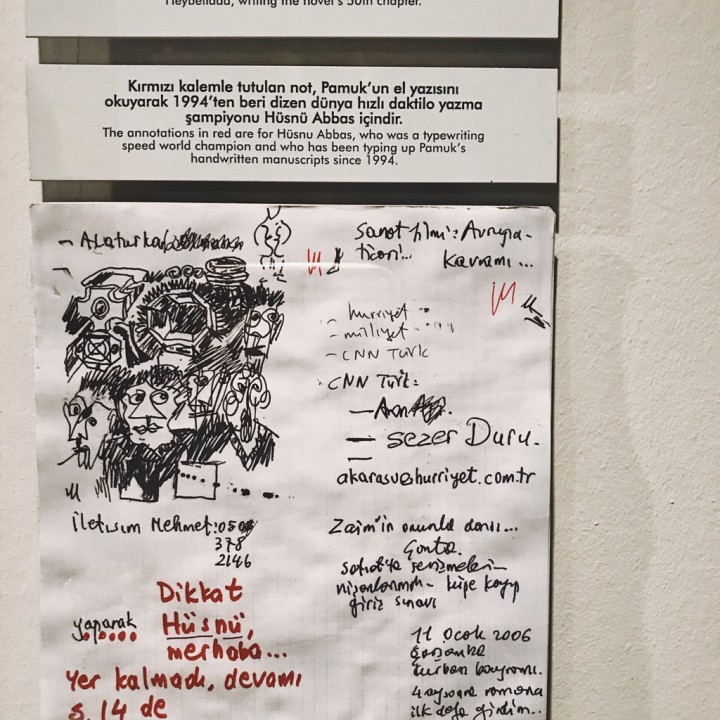 Heybeliada, writing the novel's 50th chapter.
Kırmızı kalemle tutulan not, Pamuk'un el yazısını
okuyarak 1994'ten beri dizen dünya hızlı daktilo yazma
şampiyonu Hüsnü Abbas içindir.
The annotations in red are for Hüsnu Abbas, who was a typewriting
speed world champion and who has been typing up Pamuk's
handwritten manuscripts since 1994.
- Alaturka
Sanat filmi: Avrupa-
kavramı...
- hurriyet
- milliyet
- CNN Türk
CNN Türk:
- sezer Duru.
akarasu@hurriyet.com.tr
İletisim Mehmet: 0505
378
2146
Zaim'in onunla dansı...
nişanlanması - küpe kayıp
giriş sınavı
Dikkat
yaparak Hüsnü,
merhaba...
Yer kalmadı, devamı
s. 14 de
11 Ocak 2006
Çarşamba
kurban bayramı.
romana
ilk defa girdim...